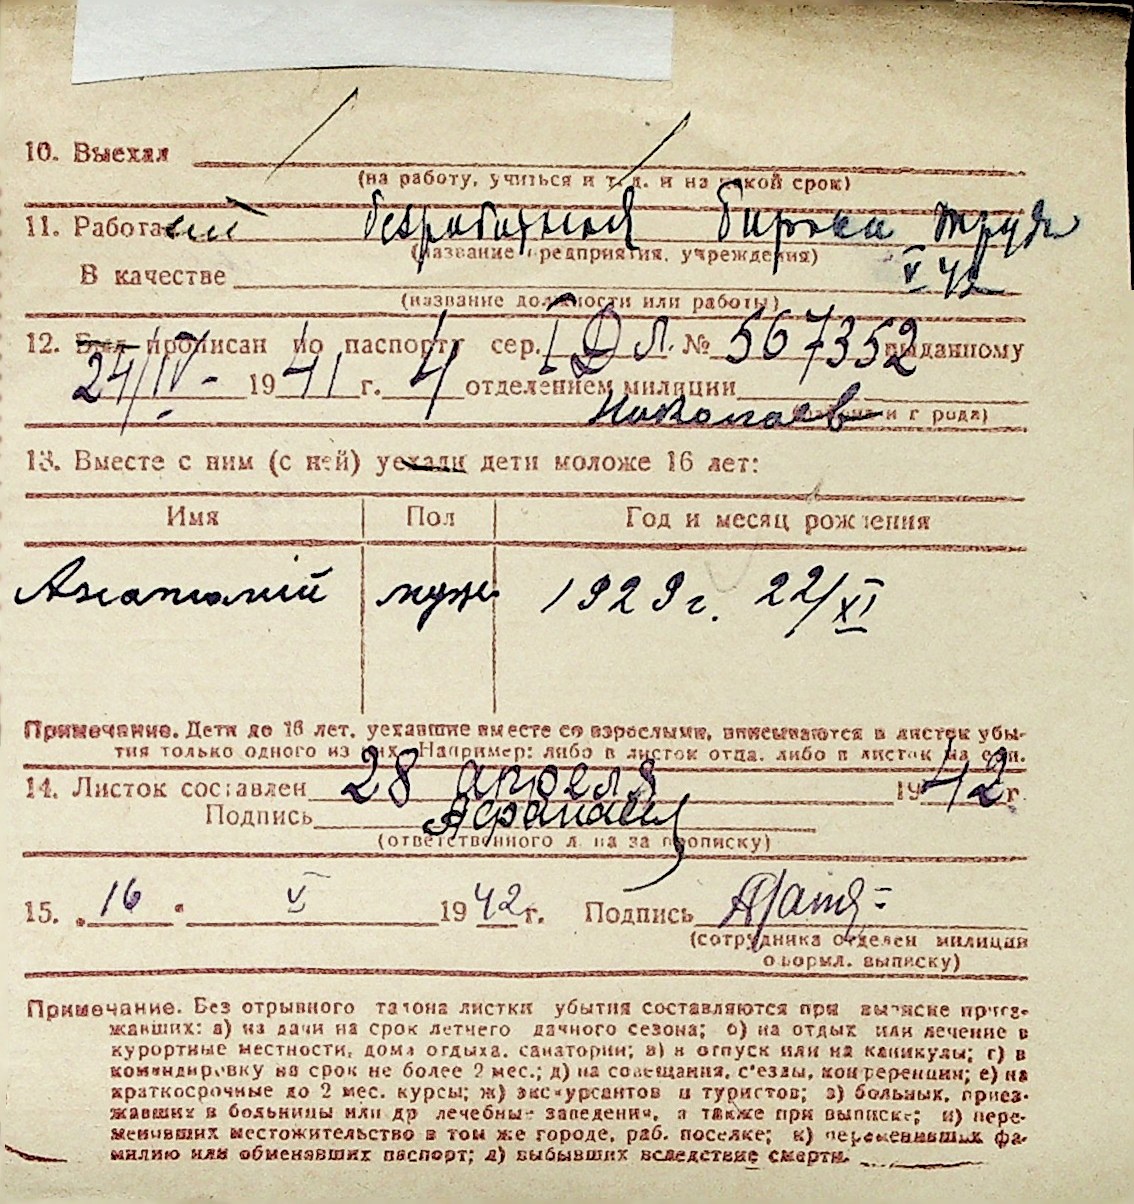 10. Выехал
(на работу, учиться и т. д. и на какой срок)
11. Работа безработный биржи труда
(название предприятия, учреждения)
В качестве V 42
(название должности или работы)
12. Был прописан по паспорту сер. I ДЛ. № 567352 выданному
24/IV- 1941 г. 4 отделением милиции
Николаев и г рода)
13. Вместе с ним (с ней) уехали дети моложе 16 лет:
Имя Пол Год и месяц рождения
Анатолий муж. 1929 г. 22/XI
Примечание. Дети до 16 лет, уехавшие вместе со взрослыми, вписываются в листок убы-
тия только одного из них. Например: либо в листок отца, либо в листок ма ери.
14. Листок составлен 28 апреля 1942 г.
Подпись
(ответственного л на за прописку)
15. "16" V 1942 г. Подпись
(сотрудника отделен милиции
оформл. выписку)
Примечание. Без отрывного талона листки убытия составляются при выписке приез-
жавших: а) на дачи на срок летнего дачного сезона; б) на отдых или лечение в
курортные местности, дома отдыха, санатории; в) в отпуск или на каникулы; г) в
командировку на срок не более 2 мес.; д) на совещания, с'езды, конференции; е) на
краткосрочные до 2 мес. курсы; ж) экскурсантов и туристов; з) больных, приез-
жавших в больницы или др лечебные заведения, а также при выписке; и) пере-
менивших местожительство в том же городе, раб. поселке; к) переменивших фа-
милию или обменявших паспорт; л) выбывших вследствие смерти.